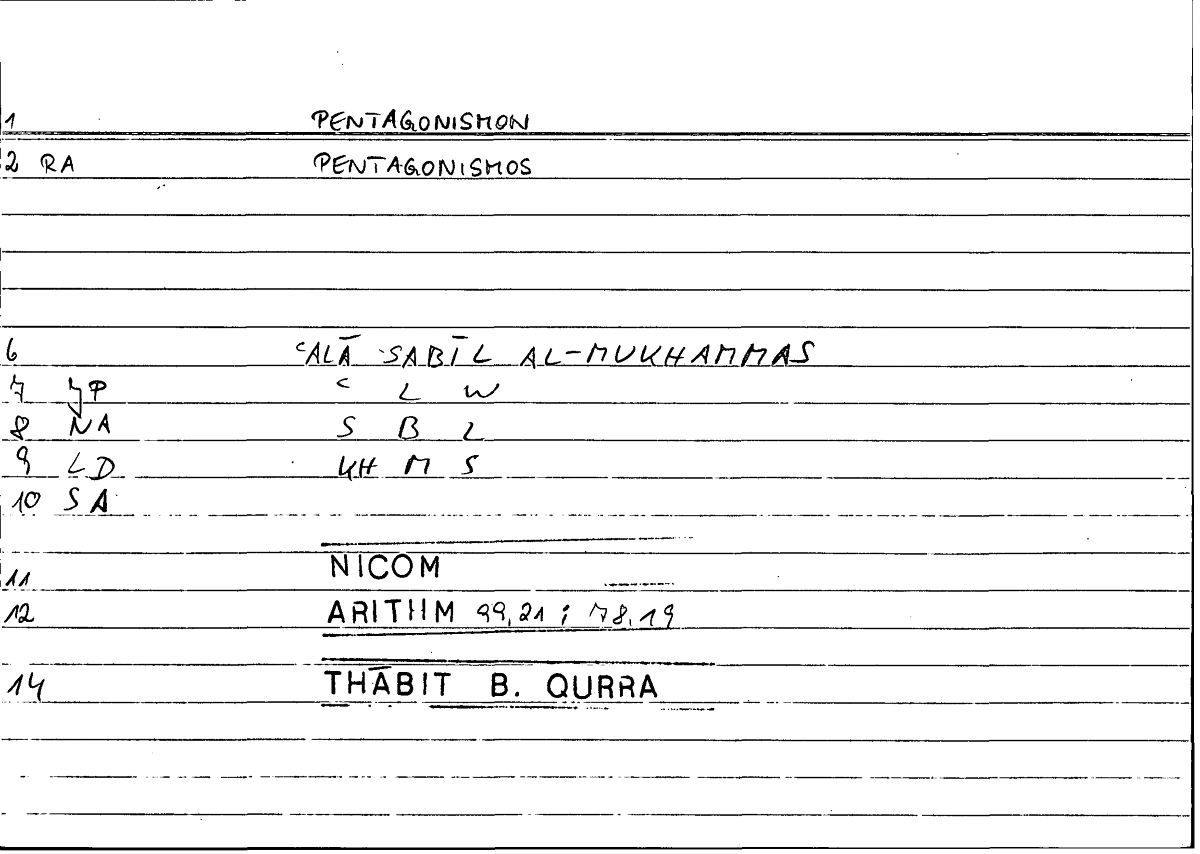 1 PENTAGONISMON
2 RA PENTAGONISMOS
6 ʿALĀ SABĪL AL-MUKHAMMAS
7 ʿ L W
8 NA S B L
9 LD KH M S
10 SA
11 NICOM
12 ARITHM 99,21 ; 78.19
14 THĀBIT B. QURRA